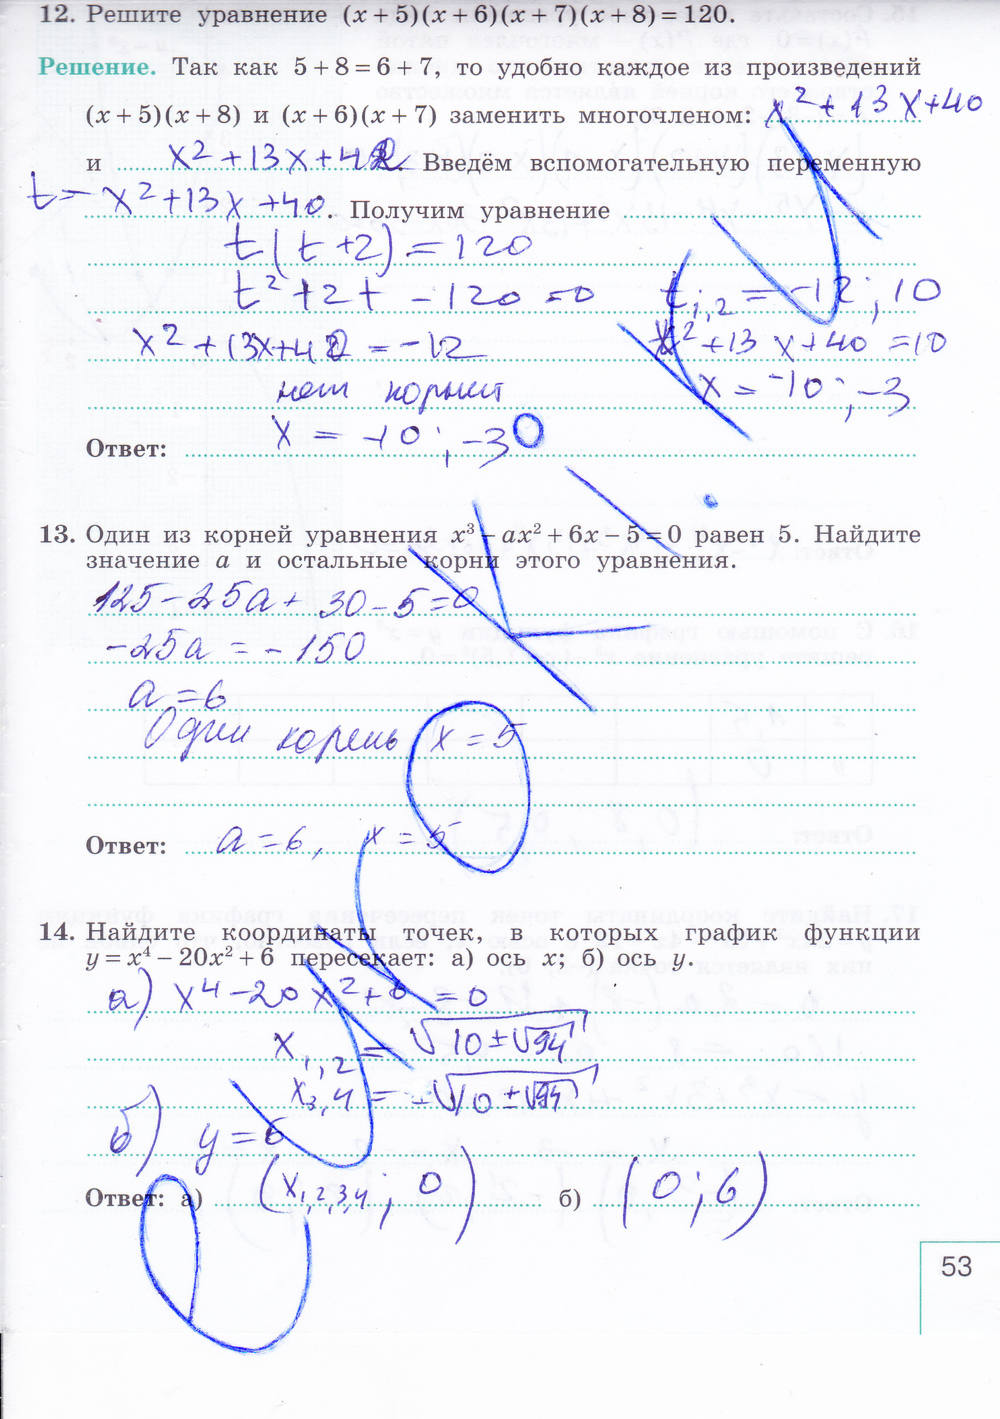 12. Решите уравнение (x + 5)(x + 6)(x + 7)(x + 8) = 120.
Решение. Так как 5 + 8 = 6 + 7, то удобно каждое из произведений
(x + 5)(x + 8) и (x + 6)(x + 7) заменить многочленом: x² + 13x + 40
и x² + 13x + 42. Введём вспомогательную переменную
t = x² + 13x + 40. Получим уравнение
t(t + 2) = 120
t² + 2t - 120 = 0 t₁,₂ = -12; 10
x² + 13x + 40 = -12 x² + 13x + 40 = 10
нет корней x = -10; -3
Ответ: x = -10; -3
13. Один из корней уравнения x³ - ax² + 6x - 5 = 0 равен 5. Найдите
значение a и остальные корни этого уравнения.
125 - 25a + 30 - 5 = 0
-25a = -150
a = 6
Один корень x = 5
Ответ: a = 6, x = 5
14. Найдите координаты точек, в которых график функции
y = x⁴ - 20x² + 6 пересекает: а) ось x; б) ось y.
а) x⁴ - 20x² + 6 = 0
x₁,₂ = √(10 ± √94)
x₃,₄ = -√(10 ± √94)
б) y = 6
Ответ: а) (x₁,₂,₃,₄; 0) б) (0; 6)
53